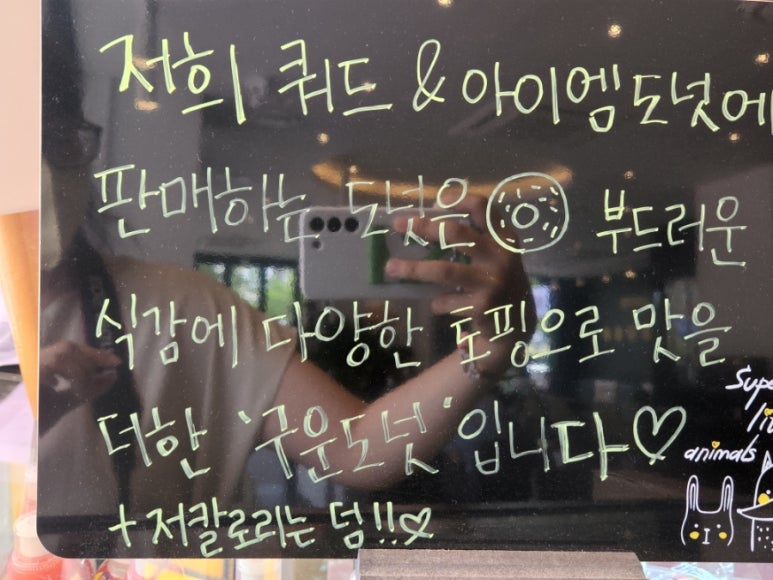 저희 쿼드 & 아이엠도넛에
판매하는 도넛은 부드러운
식감에 다양한 토핑으로 맛을
더한 '구운도넛' 입니다♡
+ 저칼로리는 덤!!♡
animals